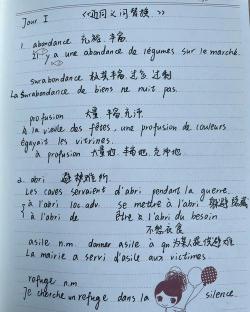 Jour I 《近同义词替换》
1. abondance 充裕, 丰富
Il y a une abondance de légumes sur le marché.
surabondance 极其丰富, 过多, 过剩
La surabondance de biens ne nuit pas.
profusion 大量, 丰富, 充沛
A la veille des fêtes, une profusion de couleurs
égayait les vitrines.
à profusion 大量地, 丰富地, 充沛地
2. abri 避难所
Les caves servaient d'abri pendant la guerre.
à l'abri loc.adv. se mettre à l'abri
à l'abri de être à l'abri du besoin
不愁衣食
asile n.m. donner asile à qn 为某人提供避难
La mairie a servi d'asile aux victimes.
refuge n.m
Je cherche un refuge dans la silence.